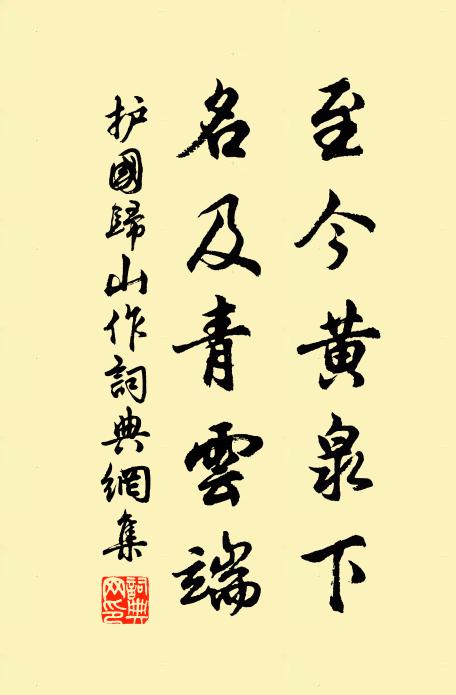 至今黄泉下
名及青雲端
护國歸山作詞典網集
詞典网印